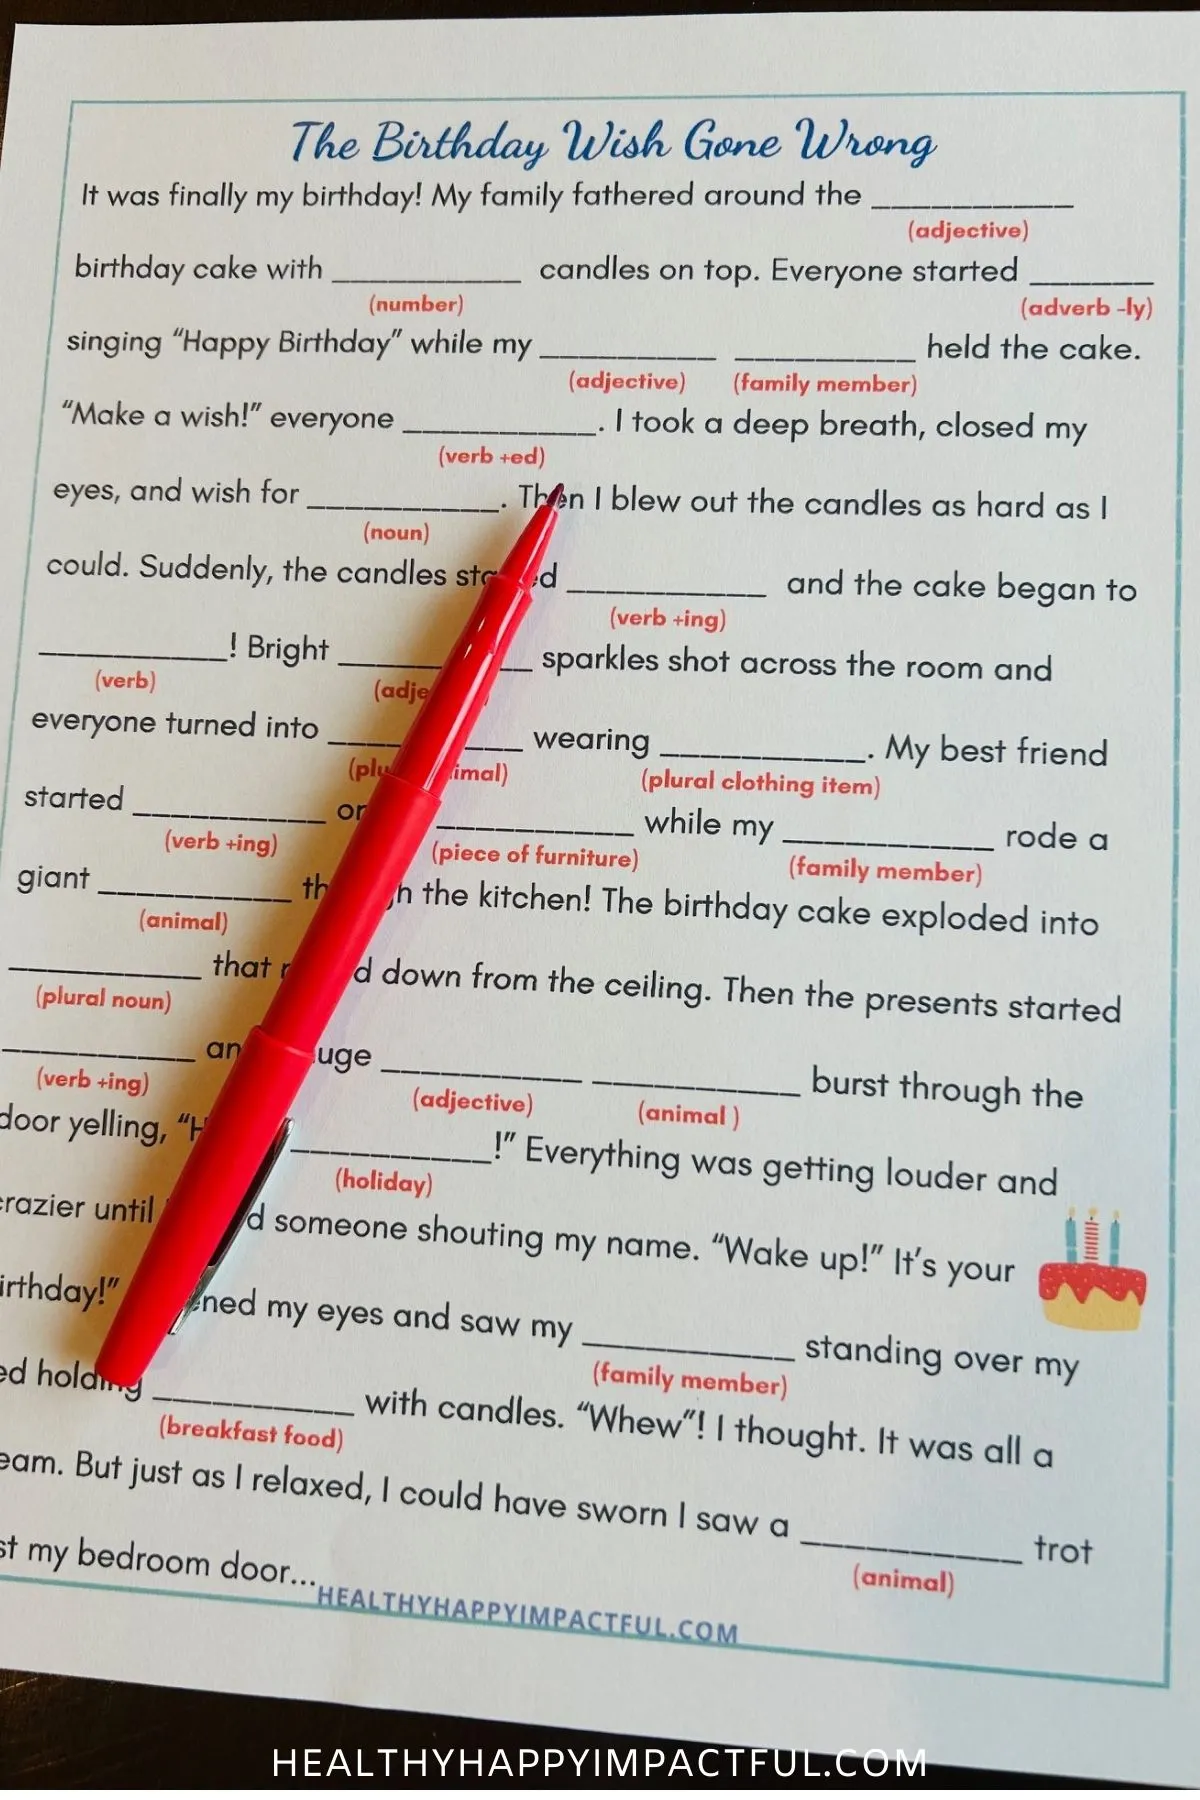 The Birthday Wish Gone Wrong
It was finally my birthday! My family fathered around the __________
(adjective)
birthday cake with __________ candles on top. Everyone started _______
(number) (adverb -ly)
singing “Happy Birthday” while my __________ __________ held the cake.
(adjective) (family member)
“Make a wish!” everyone __________. I took a deep breath, closed my
(verb +ed)
eyes, and wish for __________. Then I blew out the candles as hard as I
(noun)
could. Suddenly, the candles __________ and the cake began to
(verb +ing)
__________! Bright __________ sparkles shot across the room and
(verb)
everyone turned into __________ wearing __________. My best friend
(plural clothing item)
started __________ __________ while my __________ rode a
(verb +ing) (piece of furniture) (family member)
giant __________ the kitchen! The birthday cake exploded into
(animal)
__________ that down from the ceiling. Then the presents started
(plural noun)
__________ __________ __________ burst through the
(verb +ing) (adjective) (animal )
door yelling, “ __________!” Everything was getting louder and
(holiday)
crazier until someone shouting my name. “Wake up!” It’s your
birthday!” my eyes and saw my __________ standing over my
(family member)
holding __________ with candles. “Whew”! I thought. It was all a
(breakfast food)
But just as I relaxed, I could have sworn I saw a __________ trot
(animal)
my bedroom door...
HEALTHYHAPPYIMPACTFUL.COM
HEALTHYHAPPYIMPACTFUL.COM